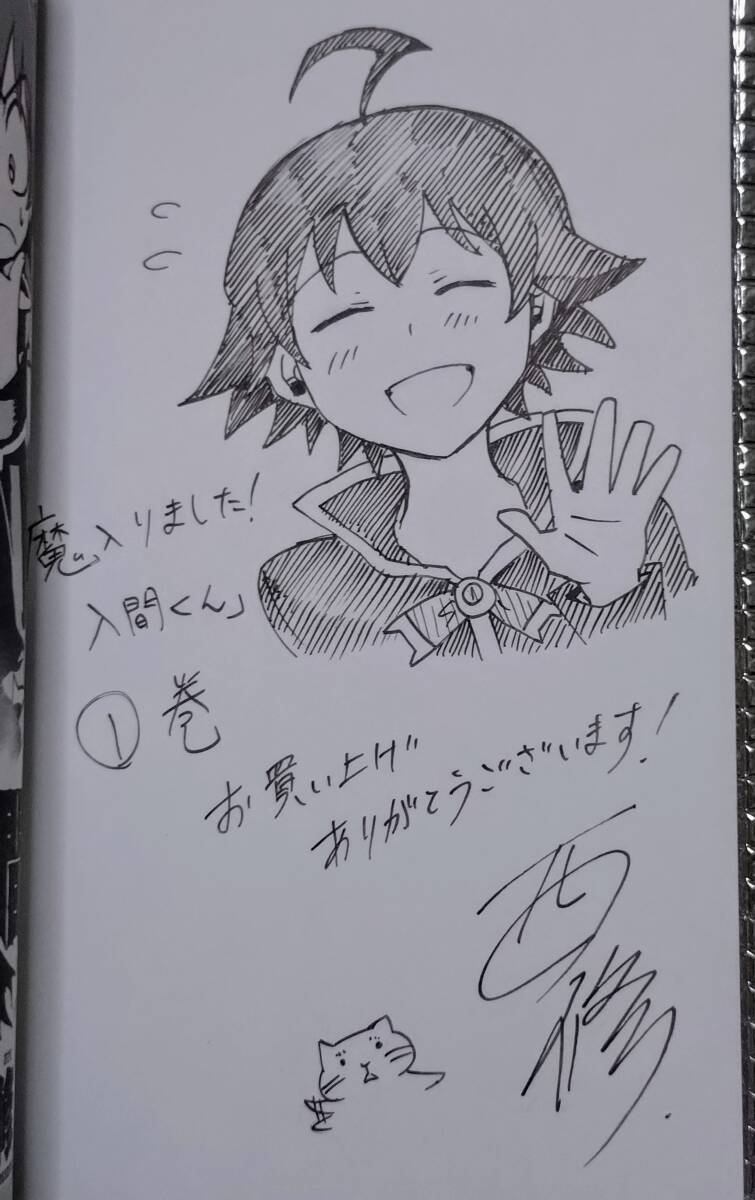 魔入りました!
入間くん」
①巻
お買い上げ
ありがとうございます!
西修